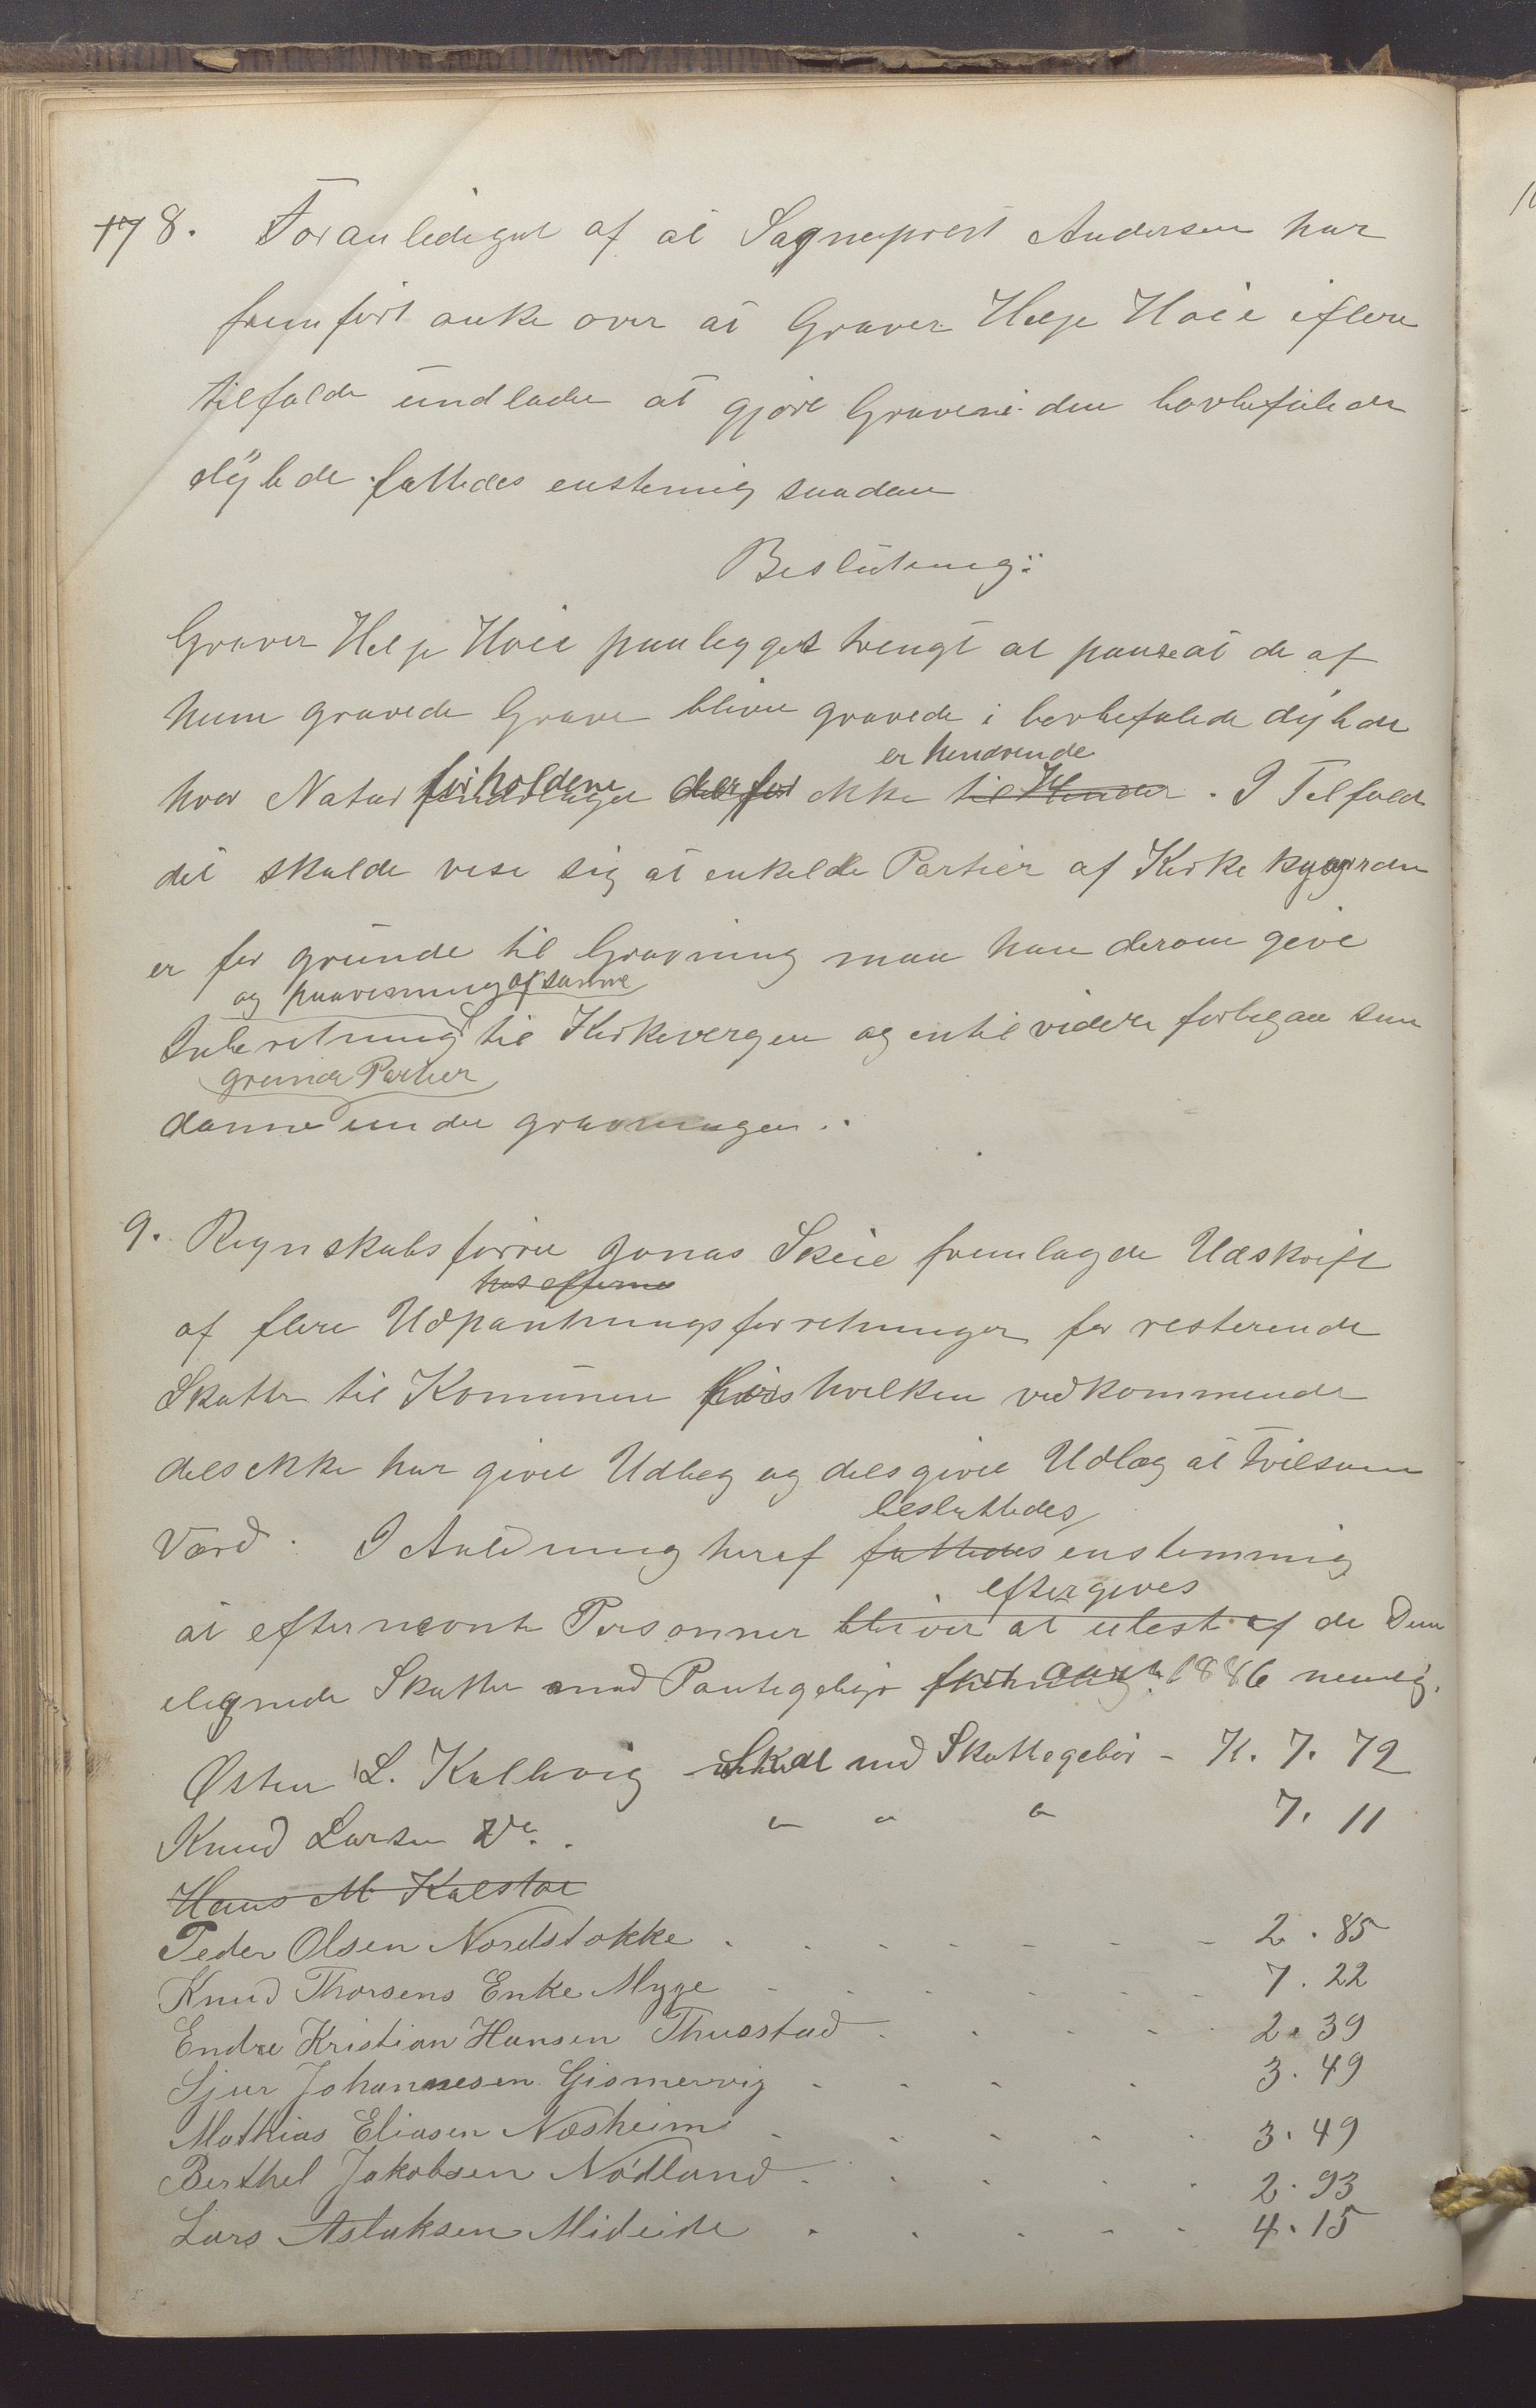 8. Foranlediget af at Sogneprest Andersen har
fremført anke over at Graver Helje Høie iflere
tilfælde undlader at gjøre Gravene i den lovbefalede
dÿbde fattedes enstemig saadan
Beslutning:
Graver Helje Høie paalegges strengt at passe at de af
ham gravede Grave bliver gravede i lovbefalede dybde
er hindrende
hvor Naturforholdene derfor ikke til Hinder. I Tilfælde
det skulde vise sig at enkelde Partier af Kirkegaarden
er for grunde til Gravning maa han derom give
og paavisning af samme
Inberetning til Kirkevergen og intil videre forbigaa saa
grunde Partier
danne under gravningen.
9. Regnskabsfører Jonas Skeie fremlagde Udskrift
hos efterne
af flere Udpantningsforretninger for resterende
Skatter til Komunen hos hvilken vedkommende
dels ikke har givet Udleg og dels givet Udlæg at tvilsom
besluttedes
Værd. I Anledning heraf fattedes enstemmig
eftergives
at efternevnte Personner bliver at utest af de Dem
ilignede Skatter med Pantegebyr 1886 nemlig.
Østen L. Kallevig Skat med Skattegebør - K. 7. 72
Knud Larsen Do. " " " 7. 11
Hans M Kalstø
Peder Olsen Nordstokke . . . . . . . 2. 85
Knud Thorsens Enke Myge - . . . . . 7. 22
Endre Kristian Hansen Thuestad . . . . . 2. 39
Sjur Johannesen Gismervig . . . . 3. 49
Mathias Eliasen Næsheim . . . . . 3. 49
Berthel Jakobsen Nødland . . . . . 2. 93
Lars Aslaksen Mideide . . . . . 4. 15